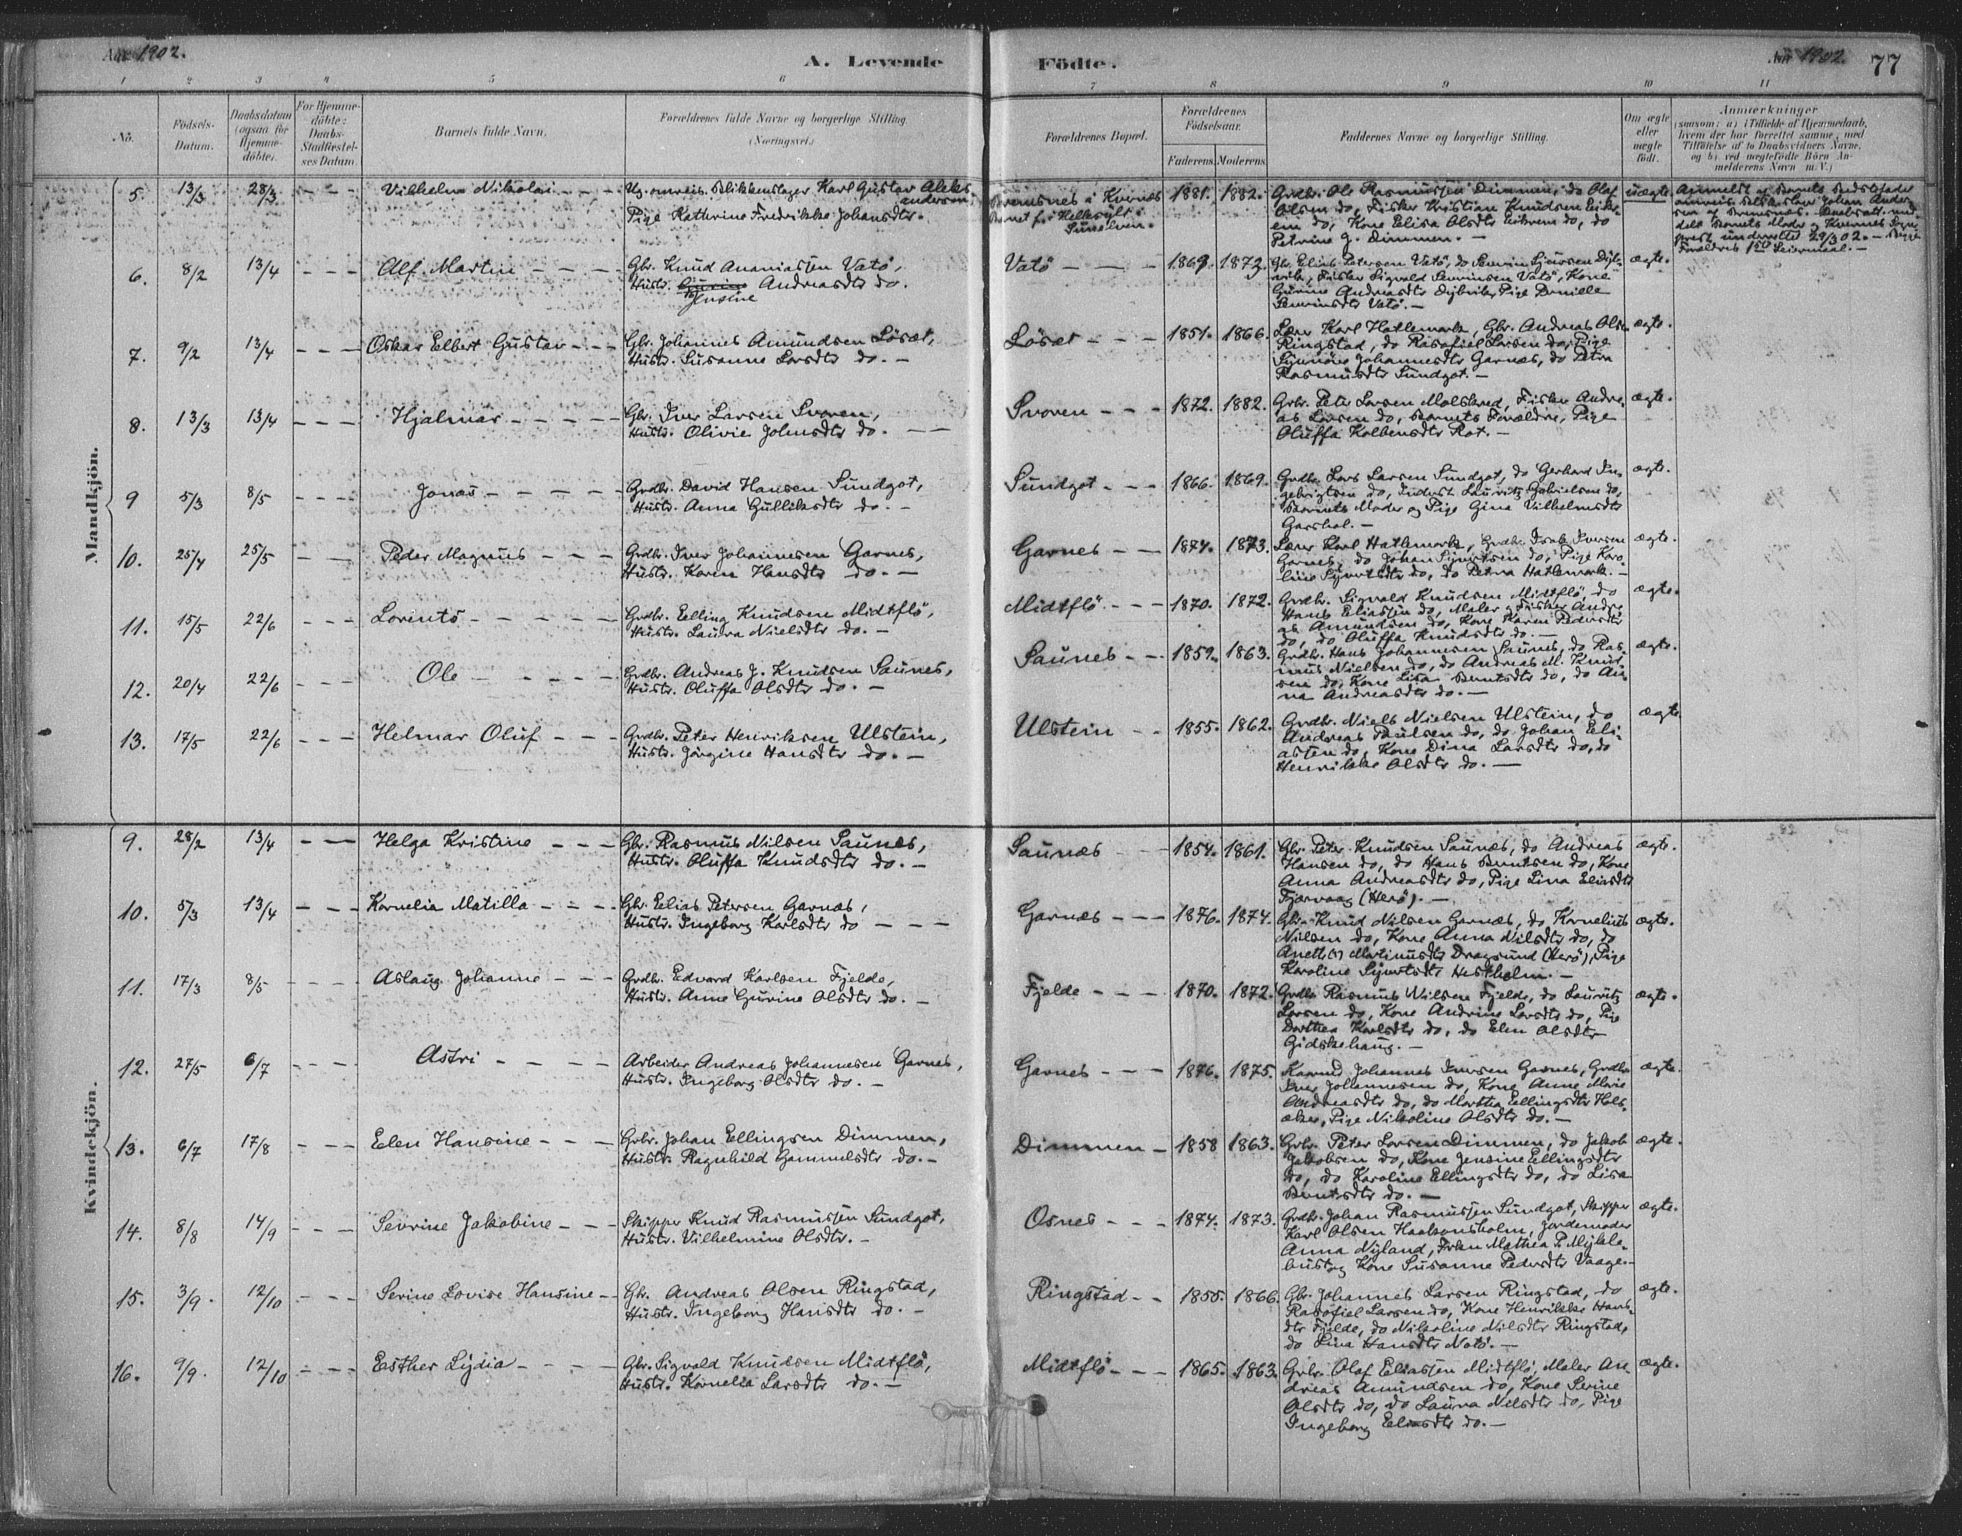 Aar 1902.
A. Levende Födte.
Aar 1902. 77
1 2 3 4 5 6 7 8 9 10 11
No.
Födsels-Datum.
Daabsdatum (ogsaa for Hjemmedöbte).
For Hjemmedöbte: Daabs-Stadfæstelses Datum.
Barnets fulde Navn.
Forældrenes fulde Navne og borgerlige Stilling. (Næringsvei.)
Forældrenes Bopæl.
Forældrenes Födselsaar.
Faderens. Moderens.
Faddernes Navne og borgerlige Stilling.
Om ægte eller uægte födt.
Anmærkninger
(saasom: a) i Tilfælde af Hjemmedaab, hvem der har forrettet samme, med Tilföielse af to Daabsvidners Navne, og b) ved uægtefödte Börn Anmelderens Navn m. V.)
Mandkjön.
5. 13/3 28/3 - - - Vilhelm Nikolai - - - Ug. omreis. Blikkenslager Karl Gustav Aleksandersen,
Pige Kathrine Fredrikke Johansdtr.
1881. 1882. Grdbr. Ole Rasmussen Dimmen, do Olaf
Olsen do, Fisker Kristian Knudsen
do, Kone Elisa Olsdtr do, do
Petrine J. Dimmen. -
uægte.
6. 8/2 13/4 - - - Alf Martin - - - Gbr. Knud Ananiassen Vatö,
Hustr. Jensine Andreasdtr do.
Vatö - - - 1869. 1873. Gbr. Elias Petersen Vatö, do
Fisker Sigvald Severinsen Vatö, Kone
Gurine Andreasdtr Pige
Severinsdtr Vatö. -
ægte.
7. 9/2 13/4 - - - Oskar Elbert Gustav - - - Gbr. Johannes Amundsen Löset,
Hustr. Susanne Larsdtr do. -
Löset - - - 1851. 1866. Lærer Karl Hatlemark, Gbr. Andreas Olsen
Ringstad, do Rasofiel Larsen do, Pige
Johannesdtr Garnæs, do Petra
Rasmusdtr Sundgot. -
ægte.
8. 13/3 13/4 - - - Hjalmar - - - Gbr. Iver Larsen Svoren,
Hustr. Olivie Johnsdtr do. - -
Svoren - - - 1872. 1882. Grbr. Peter Larsen Fisker Andreas
Larsen do, Barnets Forældre, Pige
Oluffa Kolbensdtr Rot. -
ægte.
9 5/3 8/5 - - - Jonas - - - Grdbr. David Hansen Sundgot,
Hustr. Anna Gulliksdtr do. -
Sundgot - - - 1866. 1869. Grdbr. Lars Larsen Sundgot, do Gerhard Ingebrigtsen
do, Inderst Lauritz Gabrielsen do,
Barnets Moder og Pige Gina Vilhelmsdtr
Garshol. -
ægte.
10. 25/4 25/5 - - Peder Magnus - - - Grdbr. Iver Johannesen Garnes,
Hustr. Karen Hansdtr do. -
Garnes - - - 1874. 1873. Lærer Karl Hatlemark, Grdbr. Isak Iversen
Garnes, do Johan Sjurtsen do, Pige Karoline
Sjurtsdtr do, do Petra Hatlemark. -
ægte.
11. 15/5 22/6 - - - Lorents - - - Grdbr. Elling Knudsen Midtflö,
Hustr. Laura Nielsdtr do. -
Midtflö - - - 1870. 1872. Grdbr. Sigvald Knudsen Midtflö, do
Hans Eliassen do, Maler og Fisker Andreas
Amundsen do, Kone Karen Pedersdtr
do, do Oluffa Knudsdtr do. -
ægte.
12. 20/4 22/6 - - - Ole - - - Grdbr. Andreas J. Knudsen Saunes,
Hustr. Oluffa Olsdtr do. -
Saunes - - 1859. 1863. Grdbr. Hans Johannesen Saunes, do Rasmus
Nielsen do, do Andreas M. Knudsen
do, Kone Lisa Berntsdtr do, do Anna
Andreasdtr do. -
ægte.
13. 17/5 22/6 - - - Helmar Oluf - - - Grdbr. Peter Henriksen Ulstein,
Hustr. Jörgine Hansdtr do. -
Ulstein - - 1855. 1862. Grdbr. Niels Nielsen Ulstein, do
Andreas Paulsen do, do Johan Eliassen
do, Kone Dina Larsdtr do, do
Henrikke Olsdtr do. -
ægte.
Kvindekjön.
9. 28/2 13/4 - - Helga Kristine - - - Gbr. Rasmus Nilsen Saunæs,
Hustr. Oluffa Knudsdtr do. -
Saunæs - - - 1854. 1861. Gbr. Peter Knudsen Saunæs, do Andreas
Hansen do, do Hans Berntsen do, Kone
Anna Andreasdtr do, Pige Lina Eliasdtr
Tjørvaag (Herö). -
ægte.
10. 5/3 13/4 - - - Kornelia Matilla - - - Gbr. Elias Petersen Garnæs,
Hustr. Ingeborg Karlsdtr do - - -
Garnæs - - - 1876. 1874. Gbr. Knud Nilsen Garnæs, do Kornelius
Nilsen do, Kone Anna Nilsdtr do, do
Martinusdtr Dragsund (Herö), Pige
Karoline Sjurtsdtr Hestholm. -
ægte.
11. 17/3 8/5 - - - Aslaug Johanne - - - Grdbr. Edvard Karlsen Fjelde,
Hustr. Anne Gurine Olsdtr do. -
Fjelde - - - 1870. 1872. Grdbr. Rasmus Nilsen Fjelde, do Lauritz
Larsen do, Kone Andrine Larsdtr do, Pige
Dorthea Karlsdtr do, do Elen Olsdtr
Gidskehaug. -
ægte.
12. 27/5 6/7 - - - Astri - - - Arbeider Andreas Johannesen Garnes,
Hustr. Ingeborg Olsdtr do. -
Garnes - - - 1876. 1875. Johannes Iversen Garnes, Grdbr.
Iver Johannesen do, Kone Anne Marie
Andreasdtr do, do Martha Ellingsdtr
Pige Nikoline Olsdtr do. -
ægte.
13. 6/7 17/8 - - - Elen Hansine - - - Grbr. Johan Ellingsen Dimmen,
Hustr. Ragnhild Gammelsdtr do. -
Dimmen - 1858 1863. Grbr. Peter Larsen Dimmen, do Jakob
Jakobsen do, Kone Jensine Ellingsdtr
do, do Karoline Ellingsdtr do, do Lisa
Berntsdtr do. -
ægte.
14. 8/8 14/9 - - - Sevrine Jakobine - - - Skipper Knud Rasmussen Sundgot,
Hustr. Vilhelmine Olsdtr. -
Osnes - - - 1874. 1873. Grdbr. Johan Rasmussen Sundgot, Skipper
Karl Olsen Haakonsholm, Jordemoder
Anna Nyland, Frkn Mathea P. Myklebust
og Kone Susanne Pedersdtr Vaage. -
ægte.
15. 3/9. 12/10 - - - Serine Lovise Hansine - - Gbr. Andreas Olsen Ringstad,
Hustr. Ingeborg Hansdtr do. -
Ringstad - - 1855. 1866. Gbr. Johannes Larsen Ringstad, do
Rasofiel Larsen do, Kone Henrikke Hansdtr
Fjelde, do Nikoline Nilsdtr Ringstad,
do Lina Hansdtr
ægte.
16. 9/9. 12/10 - - - Esther Lydia - - - Gbr. Sigvald Knudsen Midtflö,
Hustr. Kornelia Larsdtr do. -
Midtflö - - - 1865. 1863. Grbr. Olaf Eliassen Midtflö, Maler Andreas
Amundsen do, Kone Serine
Olsdtr do, do Laura Nilsdtr do, Pige
Ingeborg Eliasdtr do. -
ægte.